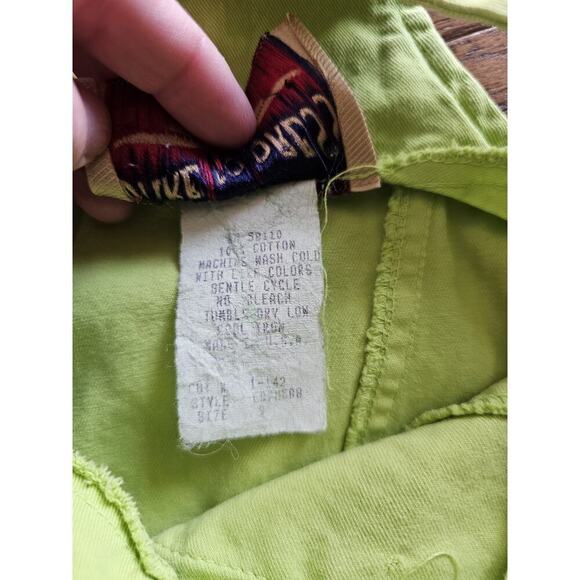 100% COTTON
MACHINE WASH COLD
WITH LIKE COLORS
GENTLE CYCLE
NO BLEACH
TUMBLE DRY LOW
COOL IRON
MADE I U.S.A
CUT # 1-142
STYLE
SIZE 9